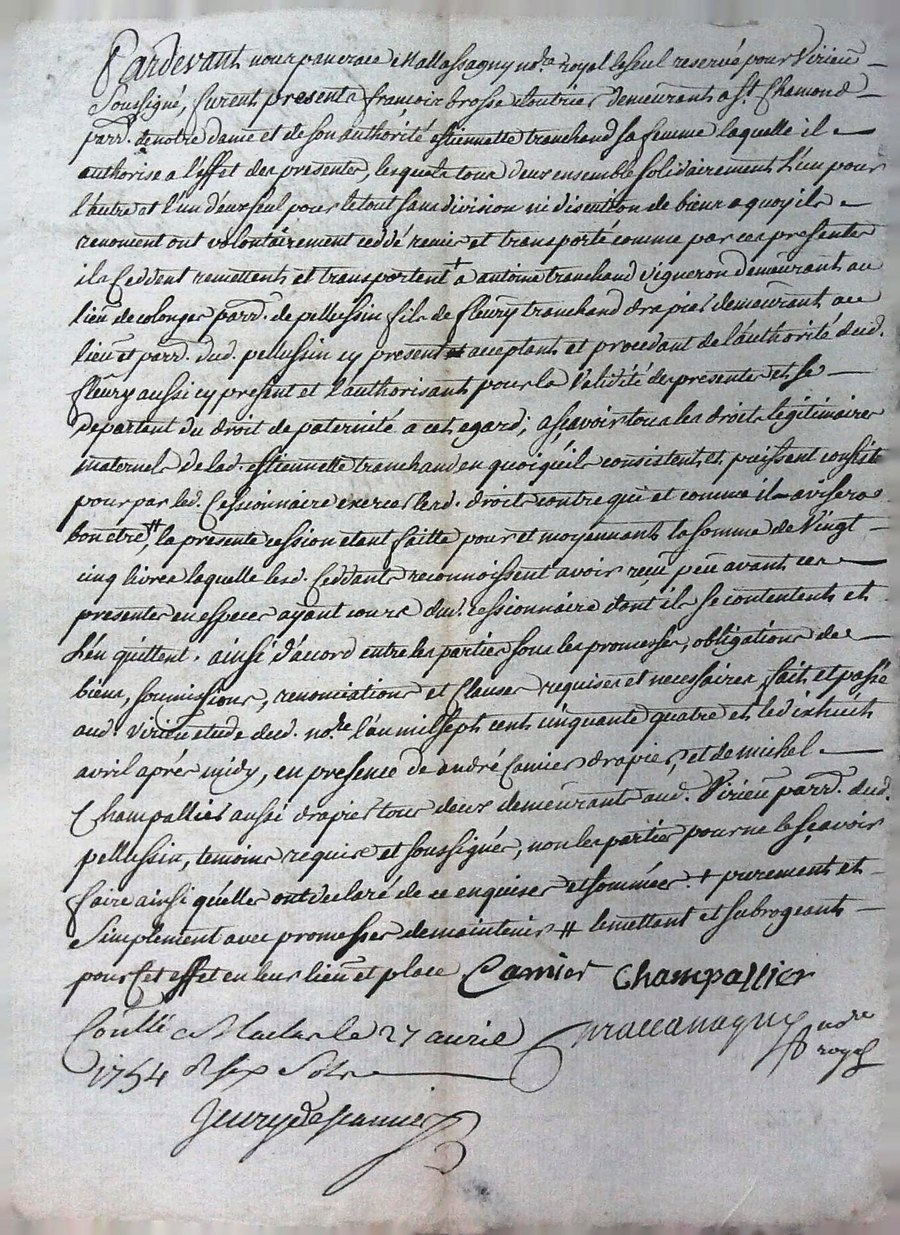 Pardevant nous pancrace Mallassagny no.re royal le seul reservé pour Virieu
soussigné, furent presents françois brosse cloutrier demeurant a st. Chamond
parr. de notre dame et de son authorité estiennette tranchand sa femme laquelle il
authorise a l'effet des presentes, lesquels tous deux ensemble solidairement l'un pour
l'autre et l'un d'eux seul pour le tout sans division ni discution de biens a quoy ils
renoncent ont volontairement ceddé remis et transporté comme par ces presentes
ils Ceddent remettent et transportent + a antoine tranchand vigneron demeurant au
lieu de colonges parr. de pellussin fils de fleury tranchand drapier demeurant au
lieu et parr. dud. pellussin cy present et acceptant et procedant de l'authorité dud.
fleury aussi cy present et l'authorisant pour la validité des presentes et se
departant du droit de paternité a cet egard; asçavoir tous les droits legitimaires
maternels de lad. estiennette tranchand en quoi qu'ils consistent et puissent consister
pour par led. Cessionnaire exercer lesd. droits contre qui et comme il avisera
bon etre #, la presente cession etant faitte pour et moyennant la somme de Vingt
cinq livres laquelle lesd. Ceddants reconnoissent avoir reçu peu avant ces
presentes en especes ayant cours dud. Cessionnaire dont ils se contentent et
l'en quittent. ainsi d'accord entre les parties sous les promesses, obligations de
biens, soumissions, renonciations et clauses requises et necessaires, fait et passé
aud. Virieu etude dud. no.re l'an mil sept cent cinquante quatre et le dixhuit
avril après midy, en presence de andré Camier drapier, et de michel
Champallier aussi drapier tous deux demeurants aud. Virieu parr. dud.
pellussin, temoins requis et soussignés, non les parties pour ne le sçavoir
faire ainsi qu'elles ont declaré de ce enquises et sommées. + purement et
simplement avec promesses de maintenir # remettant et subrogeant
pour Cet effet en leur lieu et place Camier Champallier
Conllé a Maclas le 27 avril
Mallassagny no.re royal
1754 r. six sols